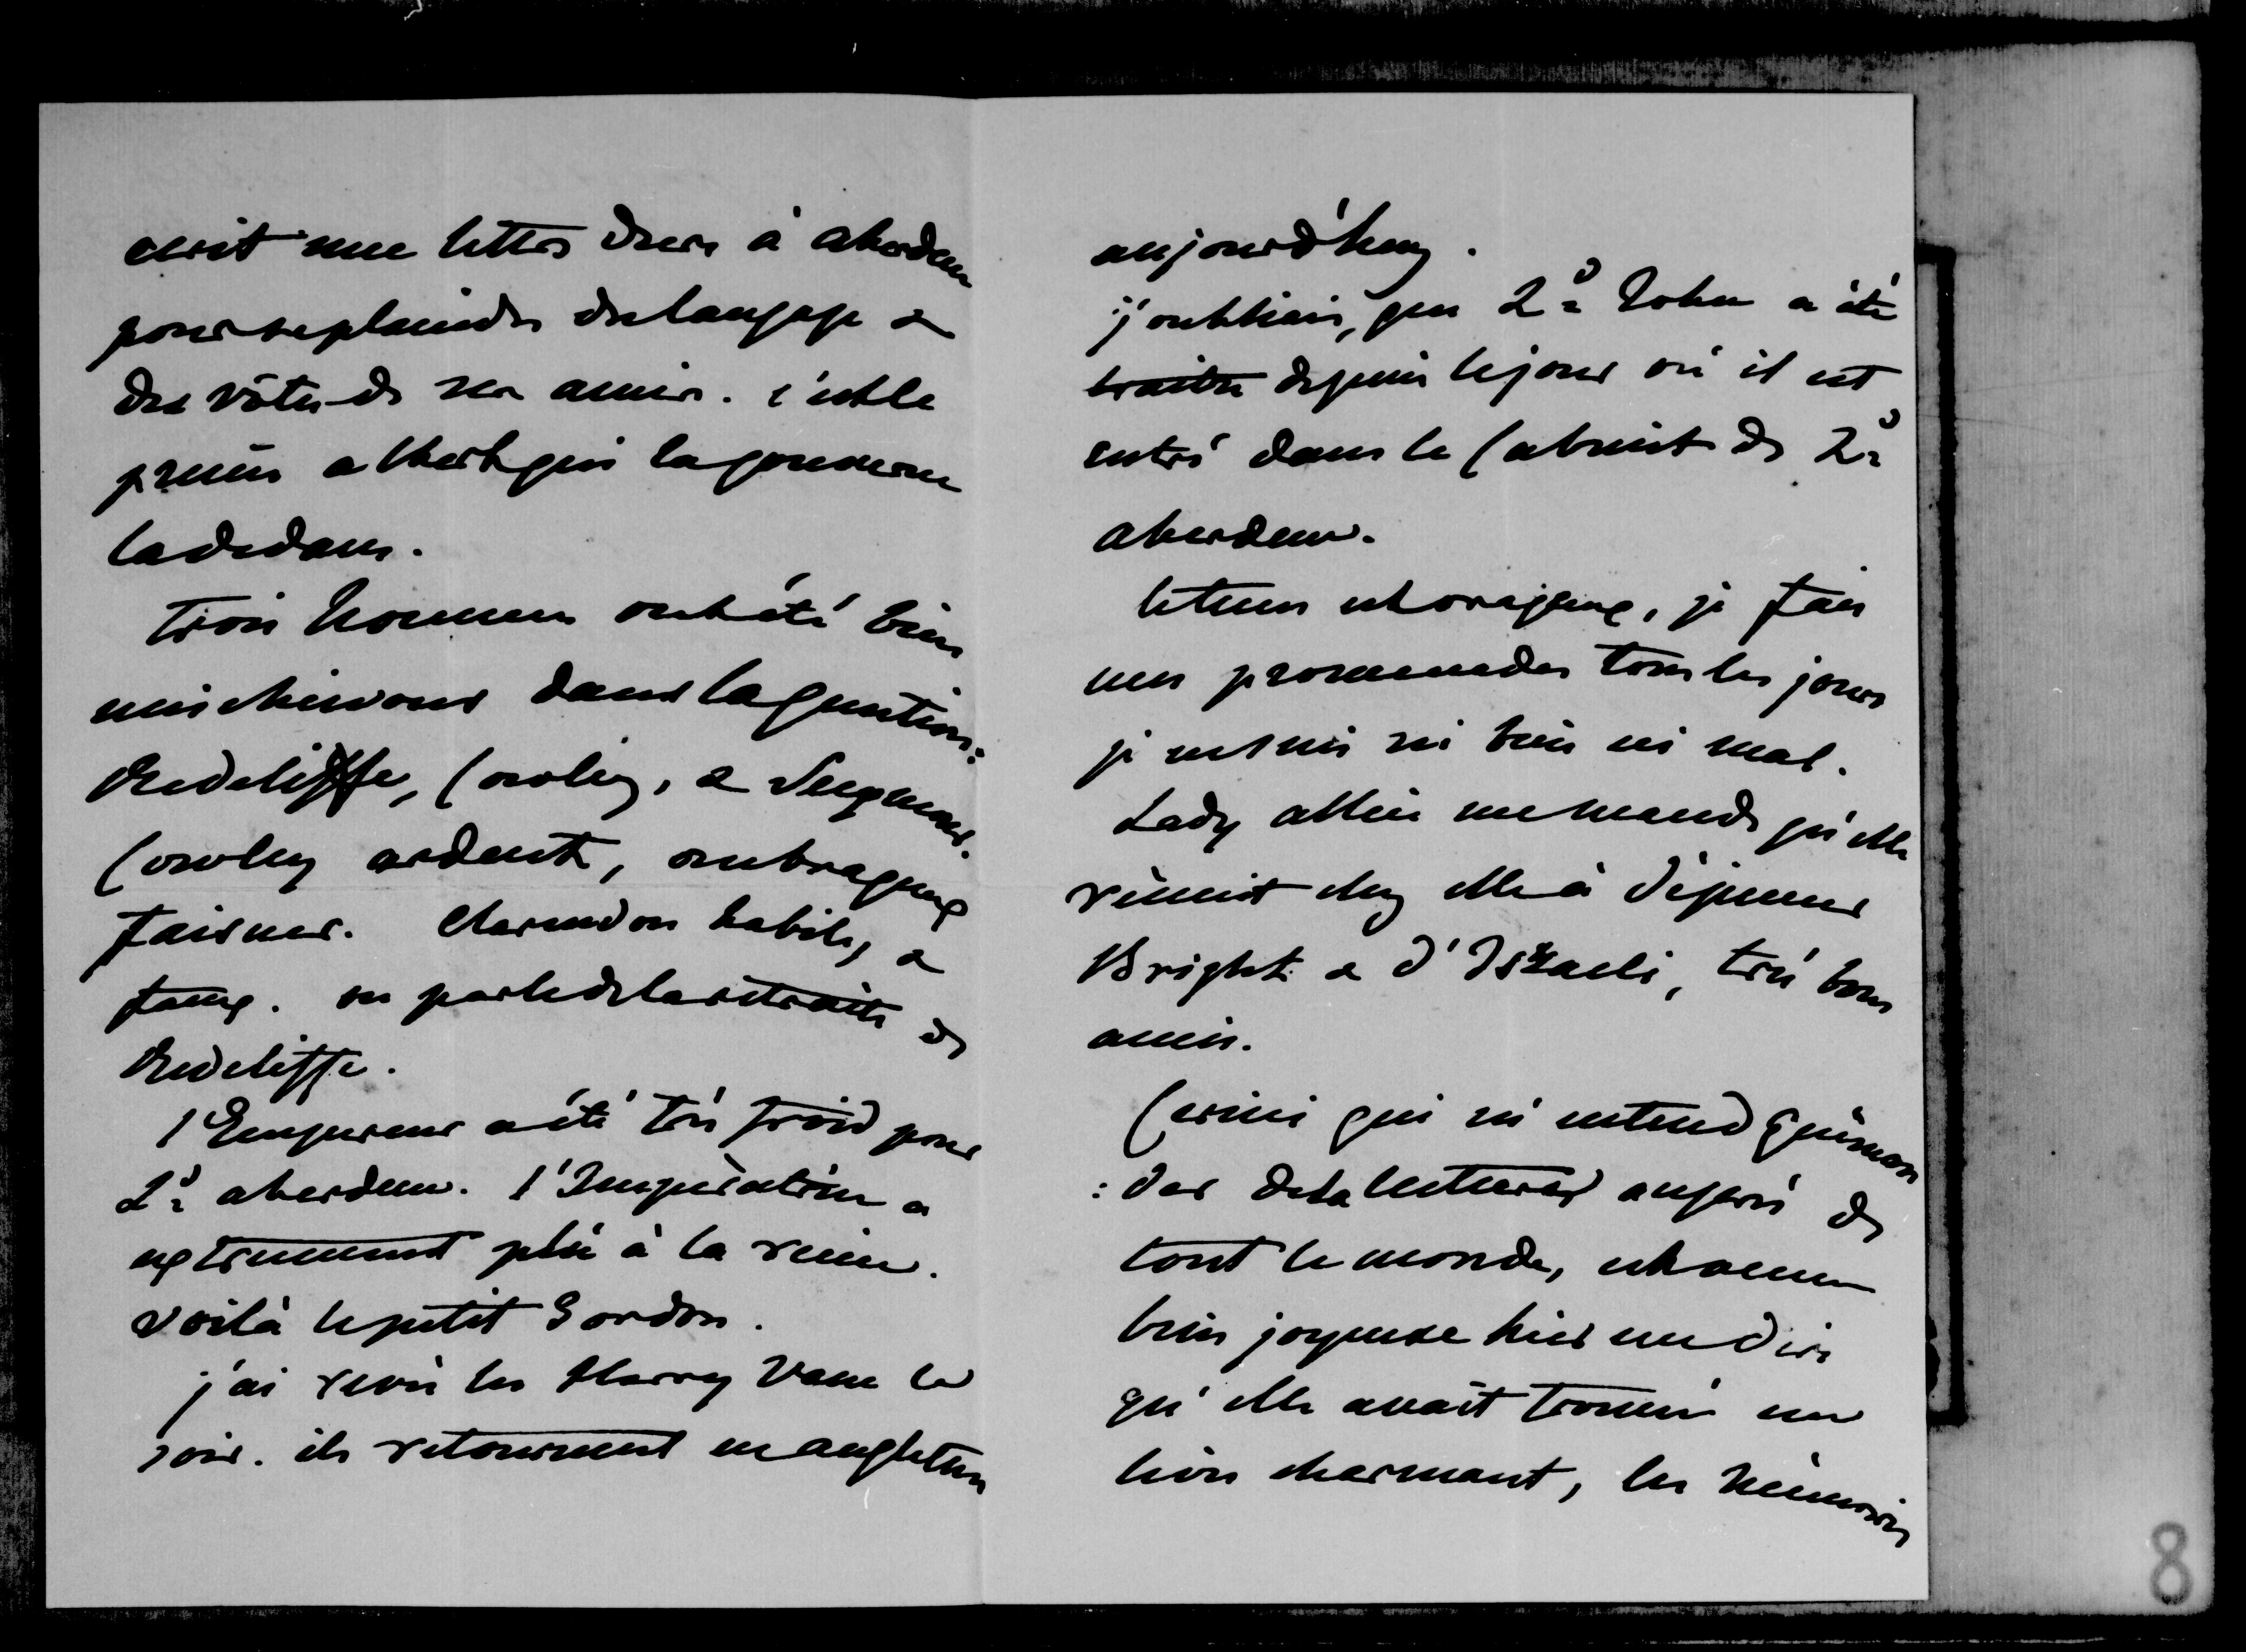 ecrit une lettre dure à aberdeen
pour se plaindre du langage &
des votes de ses amis. c'est le
prince albert qui la gouverne
la dedans.
Trois hommes ont été bien
mischievous dans la question:
Redcliffe, Cowley, & Seymour.
Cowley ardent, ombrageux
faiseur. Clarendon habile, &
faux. on parle de la retraite de
Redcliffe.
l'Empereur a été très froid pour
Ld aberdeen. l'Impératrice a
extremement plu à la reine.
voilà le petit Gordon.
j'ai revu les Harry Vane le
soir. ils retournent en angleterre
aujourd'huy.
j'oubliais, que Ld John a été
traitre depuis le jour où il est
entré dans le Cabinet de Ld
aberdeen.
le tems est orageux, je fais
mes promenades tous les jours
je ne suis ni bien ni mal.
Lady allice me mande qu'elle
réunit chez elle à déjeuner
Bright & d'Israeli, très bons
amis.
Cerini qui s'entend à
de la lecture auprès de
tout le monde, est venue
bien joyeuse hier me dire
qu'elle avait trouvé un
livre charmant, les Mémoires
8